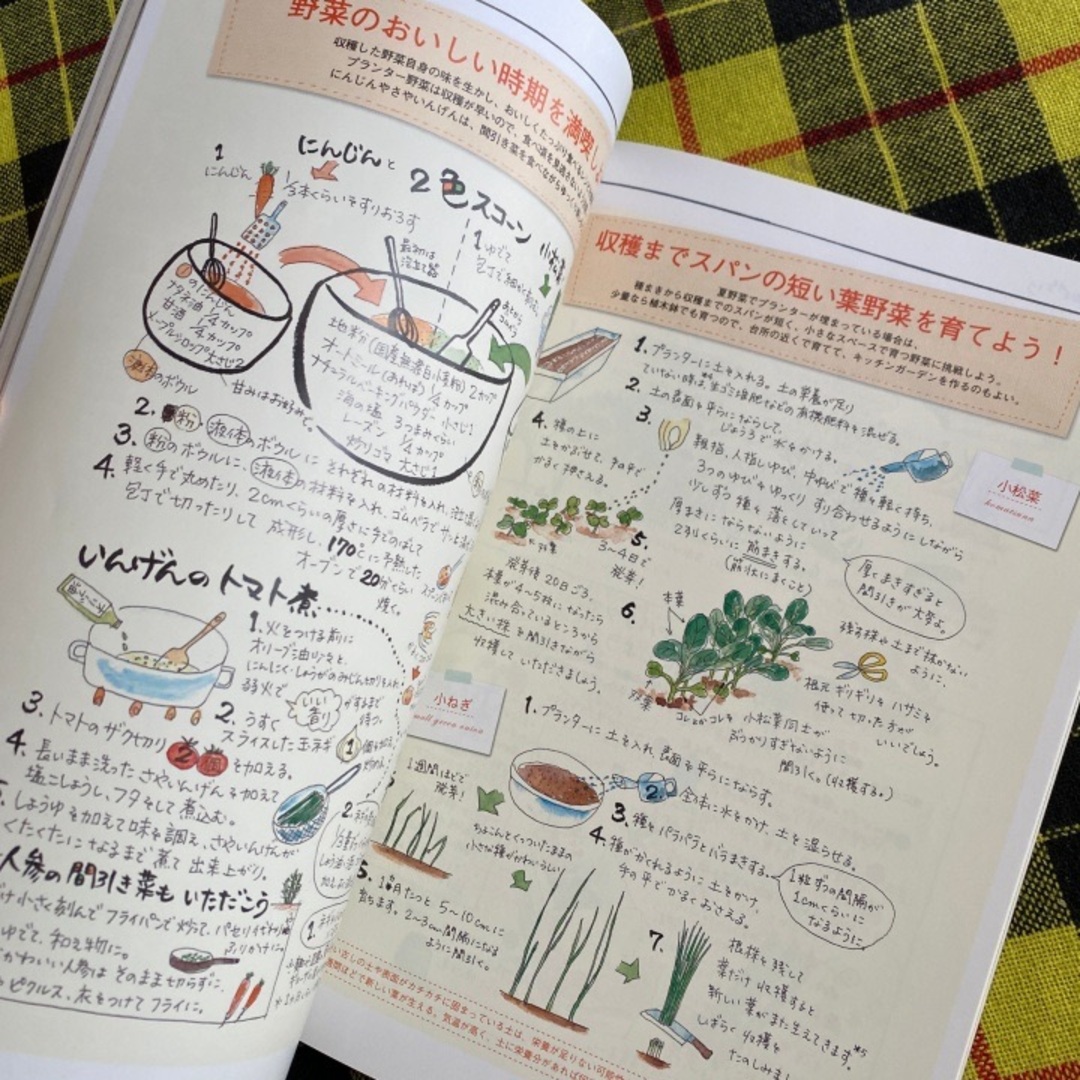 野菜のおいしい時期を満喫し
収穫した野菜自身の味を生かし、おいしくたっぷり食べる
プランター野菜は収穫が早いので、食べ頃を見逃さない
にんじんやさやいんげんは、間引き菜を食べながら
にんじんと
2色スコーン
1
にんじん
1/3本くらいをすりおろす
最初は
泡立て器
あとから
ゴムベラ
1.ゆでて
包丁で細かく
のにんじん
ナタネ油 1/4カップ
甘酒 1/4カップ
メープルシロップ大さじ2
液体のボウル
甘みはお好みで。
地粉(国産無漂白小麦粉)2カップ
オートミール(あれば)1/4カップ
ナチュラルベーキングパウダー 小さじ1
海の塩 3つまみくらい
レーズン 1/4カップ
炒りゴマ 大さじ1
2. 粉 液体のボウルに それぞれの材料を入れ
3. 粉のボウルに、液体の材料を入れ、ゴムベラで
4. 軽く手で丸めたり、2cmくらいの厚さに手でのばして
包丁で切ったりして 成形し、170℃に予熱した
オーブンで20分くらい
焼く。
いんげんのトマト煮
1.火をつける前に
オリーブ油少々と、
にんにく・しょうがのみじん切りを入れ
弱火で いい香りがするまで
待つ。
2. うすく
スライスした玉ネギ
3. トマトのザク切り 2個を加える。
4. 長いまま洗ったさやいんげんを加えて
塩こしょうし、フタをして煮込む。
しょうゆを加えて味を調え、さやいんげんが
くたくたになるまで煮て出来上がり。
人参の間引き葉もいただこう
け小さく刻んでフライパンで炒って、パセリ
ふりかけに。
ゆでて、和え物に。
かわいい人参は そのまま切らずに、
ピクルス、衣をつけてフライに。
収穫までスパンの短い葉野菜を育てよう!
夏野菜でプランターが埋まっている場合は、
種まきから収穫までのスパンが短く、小さなスペースで育つ野菜に挑戦しよう。
少量なら植木鉢でも育つので、台所の近くで育てて、キッチンガーデンを作るのもよい。
小松菜
komatsuna
1. プランターに土を入れる。土の栄養が足り
ていない時は、生ゴミ堆肥などの有機肥料を混ぜる。
2. 土の表面を平らにならして、
じょうろで水をかける。
3. 親指、人指しゆび、中ゆびで種を軽く持ち、
3つのゆびをゆっくり すり合わせるようにしながら
少しずつ種を落としていって
厚まきにならないように
2列くらいに筋まきする。
(筋状にまくこと)
厚くまきすぎると
間引きが大変よ。
4. 種の上に
土をかぶせて、手の平で
かるく押さえる。
双葉
5. 3〜4日で
発芽!
発芽後20日ごろ、
本葉が4〜5枚になったら
混み合っているところから
大きい株を間引きながら
収穫していただきましょう。
6.
本葉
双葉
コレとかコレを
小松菜同士が
ぶつかりすぎないように
間引く。(収穫する。)
残す株の土まで抜かない
ように、
根元ギリギリをハサミを
使って切った方が
いいでしょう。
小ねぎ
small green onion
1. プランターに土を入れ、表面を平らにならす。
2. 全体に水をかけ、土を湿らせる。
3. 種をパラパラとバラまきする。
1粒ずつの間隔が
1cmくらいに
なるように
4. 種がかくれるように土をかけ、
手の平でかるくおさえる。
1週間ほどで
発芽!
ちょこんとくっついたままの
小さな種がかわいらしい
5. 1ヵ月たつと 5〜10cmに
育ちます。2〜3cm間隔になる
ように間引く。
7. 根株を残して
葉だけ収穫すると
新しい葉がまた生えてきます。*5
しばらく収穫を
たのしみまし
古しの土や表面がカチカチに固まっている土は、栄養が足りない可能
週間ほどで新しい葉が生える。気温が高く、土に栄養分があれば